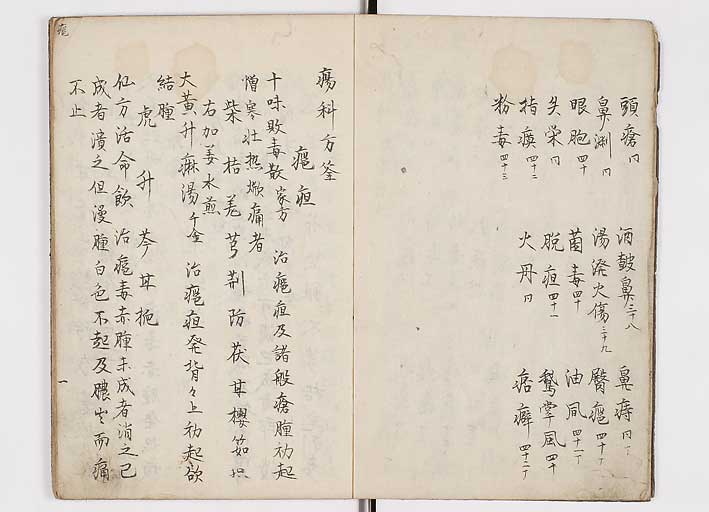 頭瘡 〃 酒皷鼻 三十八 鼻痔 〃
鼻渊 〃 湯溌火傷 三十九 臀癰 四十
眼胞 四十 菌毒 四十 油風 四十一
失栄 〃 脱疽 四十一 鵝掌風 四十
指瘓 四十二 火丹 〃 癌癖 四十二
粉毒 四十三
瘍科方筌
癰疽
十味敗毒散 家方 治癰疽及諸般瘡腫初起
憎寒壮熱焮痛者
柴 桔 羌 芎 荊 防 茯 甘 櫻 茹
右加姜水煎
大黄升麻湯 千金 治癰疽発背々上初起欲
結腫
虎 升 芩 甘 梔
仙方活命飲 治癰毒赤腫未成者消之已
成者潰之但漫腫白色不起及膿出而痛
不止
一
癰